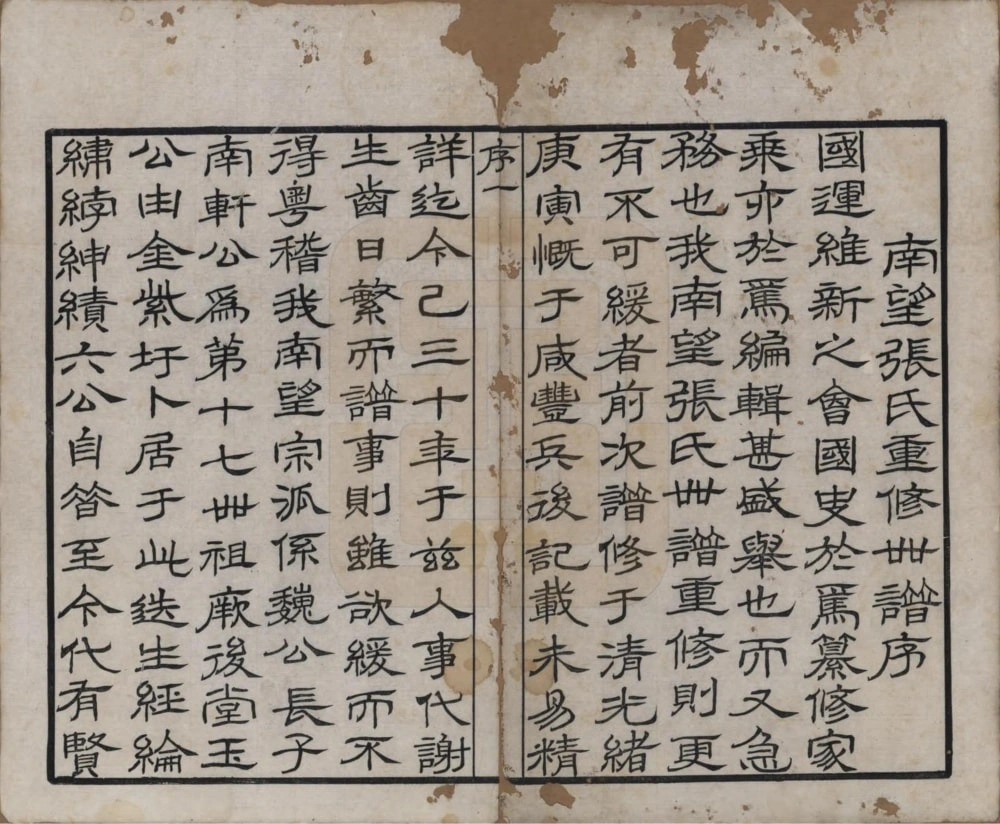 南望張氏重修世譜序
國運維新之會國史於焉纂修家
乘亦於焉編輯甚盛舉也而又急
務也我南望張氏世譜重修則更
有不可緩者前次譜修于清光緒
庚寅慨于咸豐兵後記載未易精
序一
詳迄今已三十年于兹人事代謝
生齒日繁而譜事則雖欲緩而不
得粵稽我南望宗派係魏公長子
南軒公爲第十七世祖厥後堂玉
公由金紫圩卜居于此迭生經綸
繡綍紳績六公自簪至今代有賢